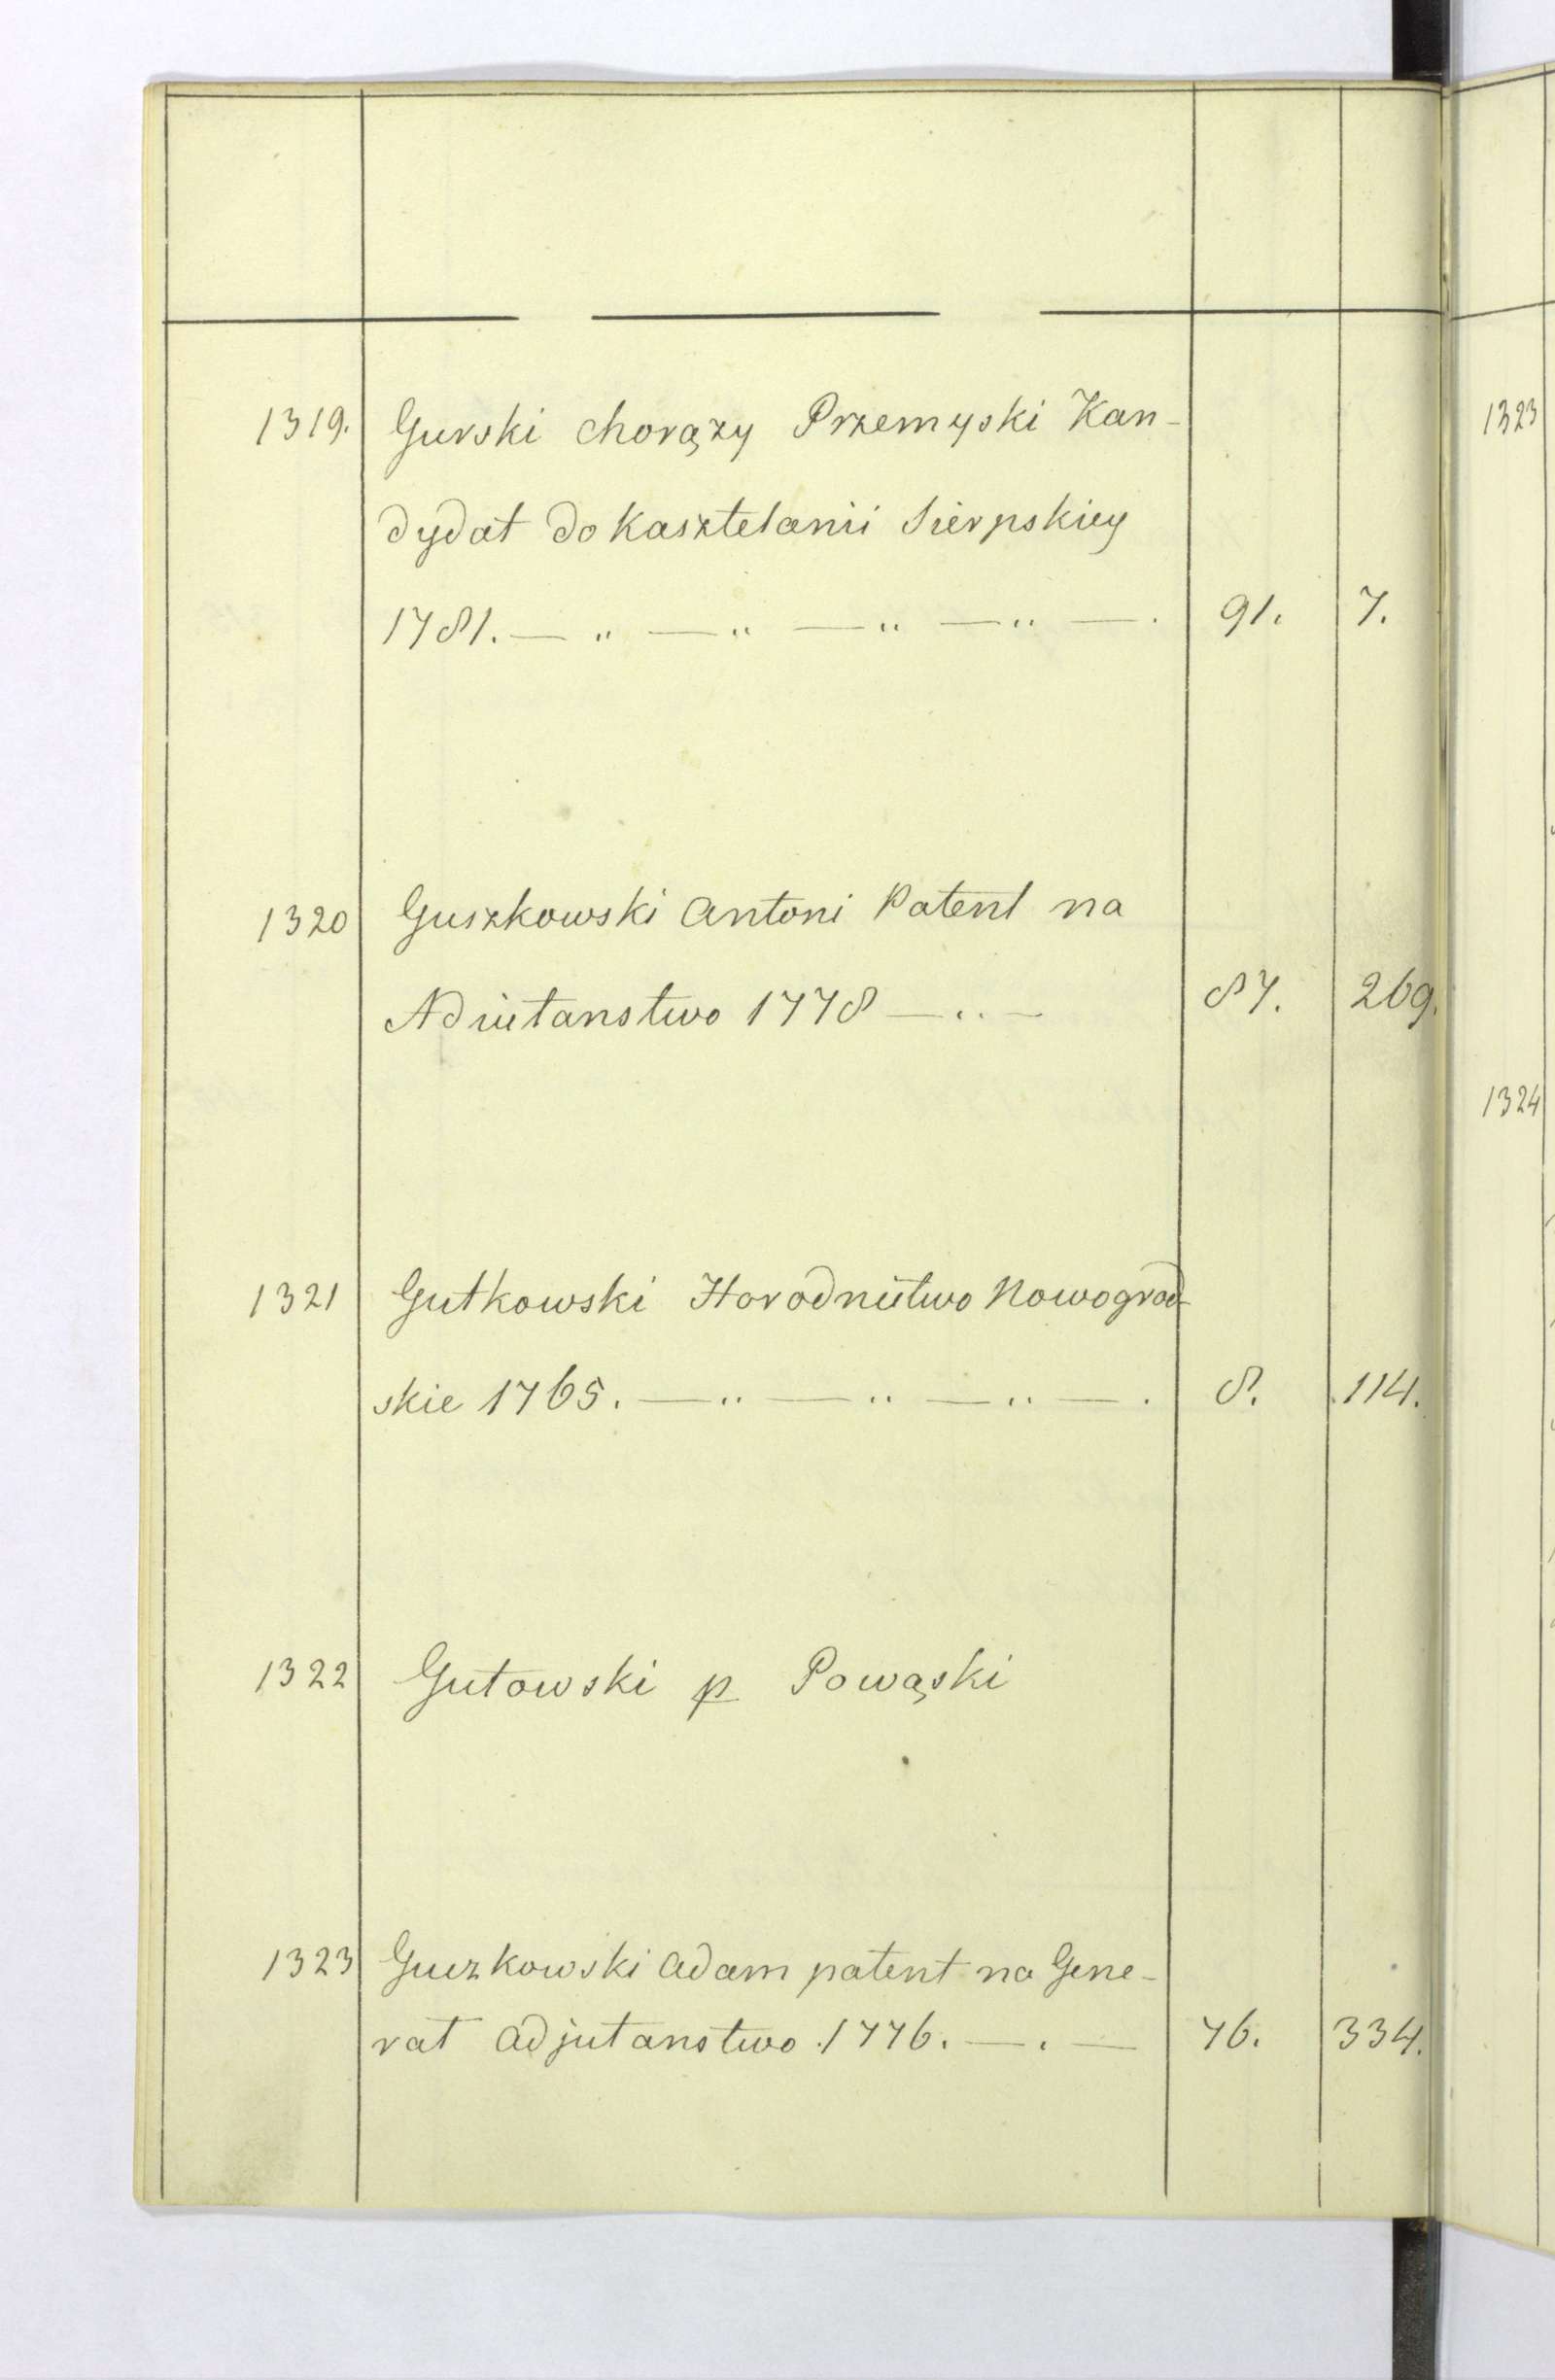 1319. Gurski chorązy Przemyski Kan-
dydat do Kasztelanii Sierpskiey
1781. — " — " — " — " — . 91. 7.
1320 Guszkowski Antoni Patent na
Adiutanstwo 1778 — .. — 87. 269.
1321 Gutkowski Horodnictwo Nowogrod-
skie 1765. — " — " — " — . 8. 114.
1322 Gutowski p Powąski
1323 Guzkowski Adam patent na Gene-
rat adjutanstwo 1776. — . — 76. 334.
1323
1324